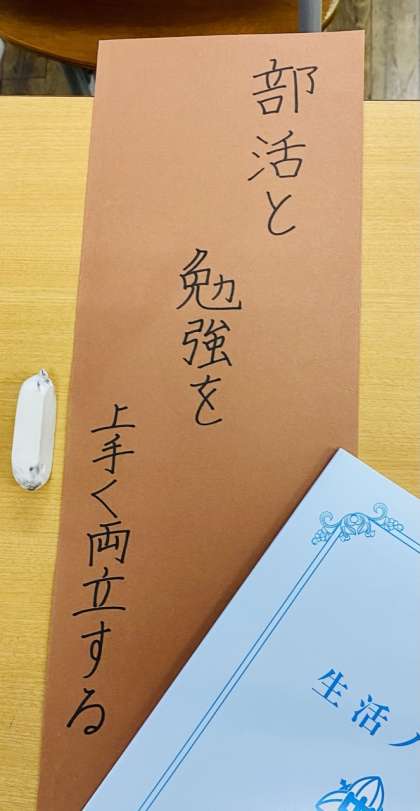 部活と
勉強を
上手く両立する
生活ノ